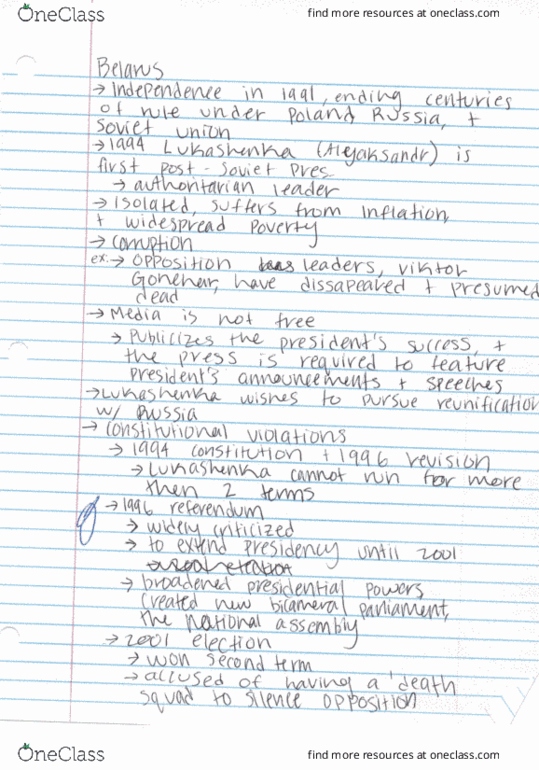 OneClass
find more resources at oneclass.com
Belarus
→ Independence in 1991, ending centuries
of rule under Poland Russia, +
Soviet Union
→ 1994 Lukashenka (Alejaksandr) is
first post-Soviet Pres
→ authoritarian leader
→ Isolated, suffers from inflation,
+ widespread poverty
→ corruption
ex: → Opposition leaders, Viktor
Gonchar, have dissapeared + presumed
dead
→ Media is not free
→ Publicizes the president's success, +
the press is required to feature
president's announcements + speeches
→ Lukashenka wishes to pursue reunification
w/ Russia
→ Constitutional violations
→ 1994 constitution + 1996 revision
→ Lukashenka cannot run for more
then 2 terms
→ 1996 referendum
→ widely criticized
→ to extend presidency until 2001
→ broadened presidential powers
created new bicameral parliament,
the national assembly
→ 2001 election
→ won second term
→ accused of having a 'death
squad to silence opposition
OneClass
find more resources at oneclass.com